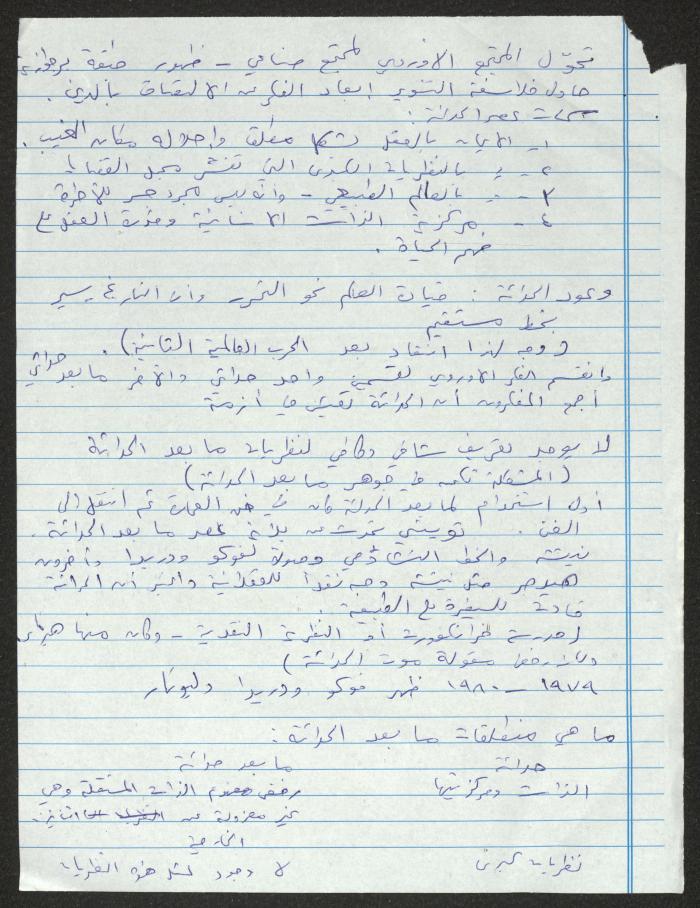 تحوّل المجتمع الاوروبي لمجتمع صناعي - ظهور طبقة برجوازية
حاول فلاسفة التنوير ابعاد الفكر عن الالتصاق بالدين.
سمات عصر الحداثة:
١- الايمان بالعقل بشكل مطلق واحلاله مكان الغيب.
٢- = بالنظريات الكبرى التي تفسّر مجمل القضايا
٣- = بالعالم الطبيعي - وانه ليس مجرد جسر للآخرة
٤- مركزية الذات الانسانية وقدرة العقل على
فهم الحياة.
وعود الحداثة: قيادة العالم نحو التحرر وان التاريخ يسير
بخط مستقيم
(وجه لهذا انتقاد بعد الحرب العالمية الثانية).
وانقسم الفكر الاوروبي لقسمين واحد حداثي والآخر ما بعد حداثي
أجمع المفكرون أن الحداثة تعيش في أزمة
لا يوجد تعريف شافي وكافي لنظريات ما بعد الحداثة
(المشكلة تكمن في جوهر ما بعد الحداثة)
أول استخدام لما بعد الحداثة كان في فن العمارة ثم انتقل إلى
الفن. توينبي تحدث عن بداية عصر ما بعد الحداثة.
نيتشه والخط التشاؤمي وصولا لفوكو ودريدا وآخرون
هيدجر مثل نيتشه وجه نقدا للعقلانية واعتبر أن الحداثة
قادت للسيطرة على الطبيعة.
(مدرسة فرانكفورت أو النظرية النقدية - وكان منها هبرماس
وكان رفض مقولة موت الحداثة)
١٩٧٩ - ١٩٨٠ ظهر فوكو ودريدا وليوتار
ما هي منطلقات ما بعد الحداثة:
حداثة ما بعد حداثة
الذات ومركزيتها رفض مفهوم الذات المستقلة وهي
غير معزولة عن
الخارجية
نظريات كبرى لا وجود لمثل هذه النظريات